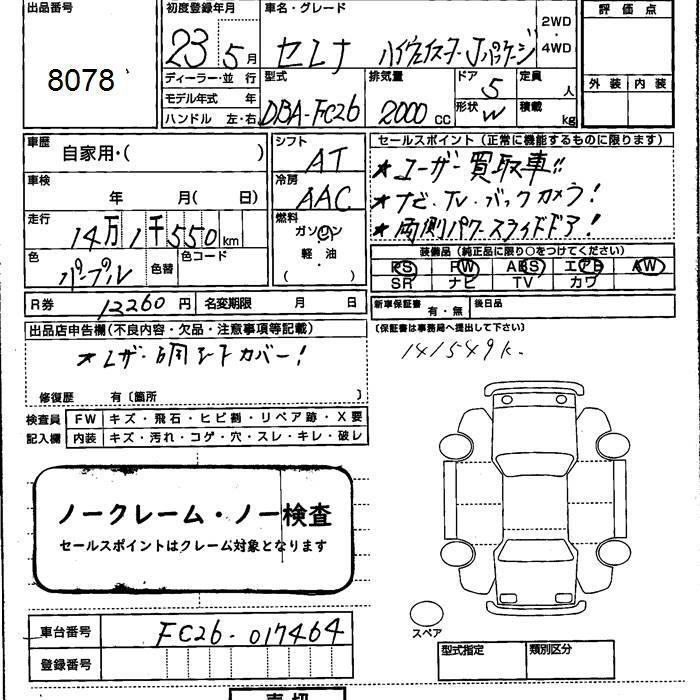 出品番号 初度登録年月 車名・グレード 2WD・4WD 評価点
8078 23年 5月 セレナ ハイウェイスター Jパッケージ
ディーラー・並行 型式 排気量 ドア 5 定員 人 外装 内装
モデル年式 年 DBA-FC26 2000cc
ハンドル 左・右 形状 W 積載 kg
車歴 自家用・( ) シフト AT セールスポイント(正常に機能するものに限ります)
★ユーザー買取車!!
車検 年 月( 日) 冷房 AAC ★ナビ・TV・バックカメラ!
走行 14万1千550km 燃料 ガソリン ★両側パワースライドドア!
軽・油 ( ) 装備品(純正品に限り○をつけてください)
色 パープル 色替 色コード PS PW ABS エアB AW
SR ナビ TV カワ
R券 12260円 名変期限 月 日 新車保証書 有・無 後日品
出品店申告欄(不良内容・欠品・注意事項等記載) (保証書は事務局へ提出して下さい)
141549k.
修復歴 有〔箇所 〕
検査員記入欄 FW キズ・飛石・ヒビ割・リペア跡・X要
内装 キズ・汚れ・コゲ・穴・スレ・キレ・破レ
ノークレーム・ノー検査
セールスポイントはクレーム対象となります
スペア
車台番号 FC26-017464
登録番号 型式指定 類別区分